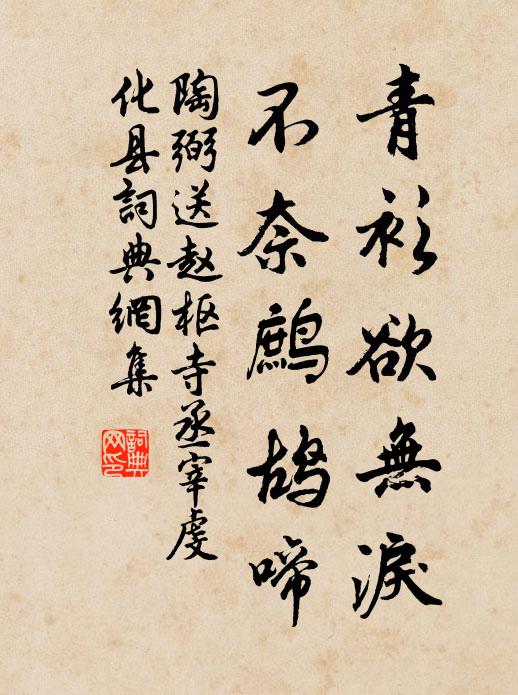 青衫欲無淚
不奈鷓鴣啼
陶弼送赵枢寺丞宰虔
化县詞典網集
詞典
网印